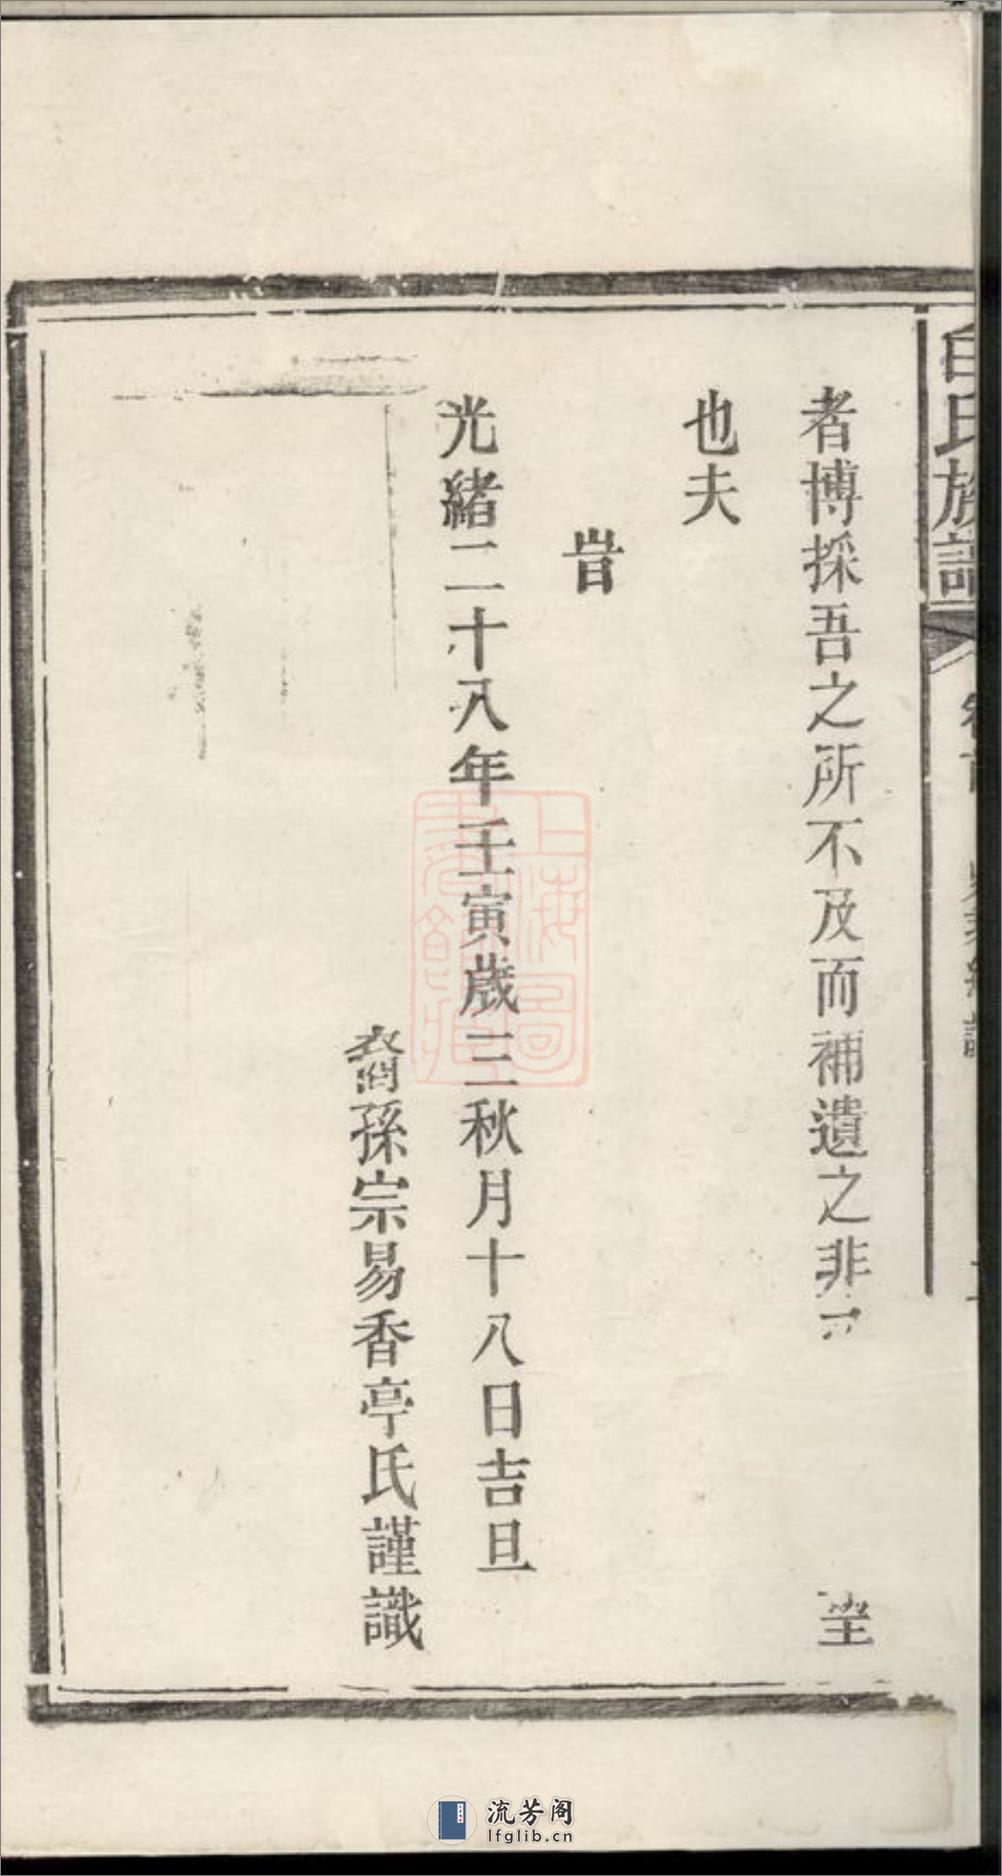 氏族譜
者博採吾之所不及而補遺之非
也夫
旹
光緒二十八年壬寅歲三秋月十八日吉旦
裔孫宗易香亭氏謹識
上海圖
書館藏
流芳阁
lfglib.cn